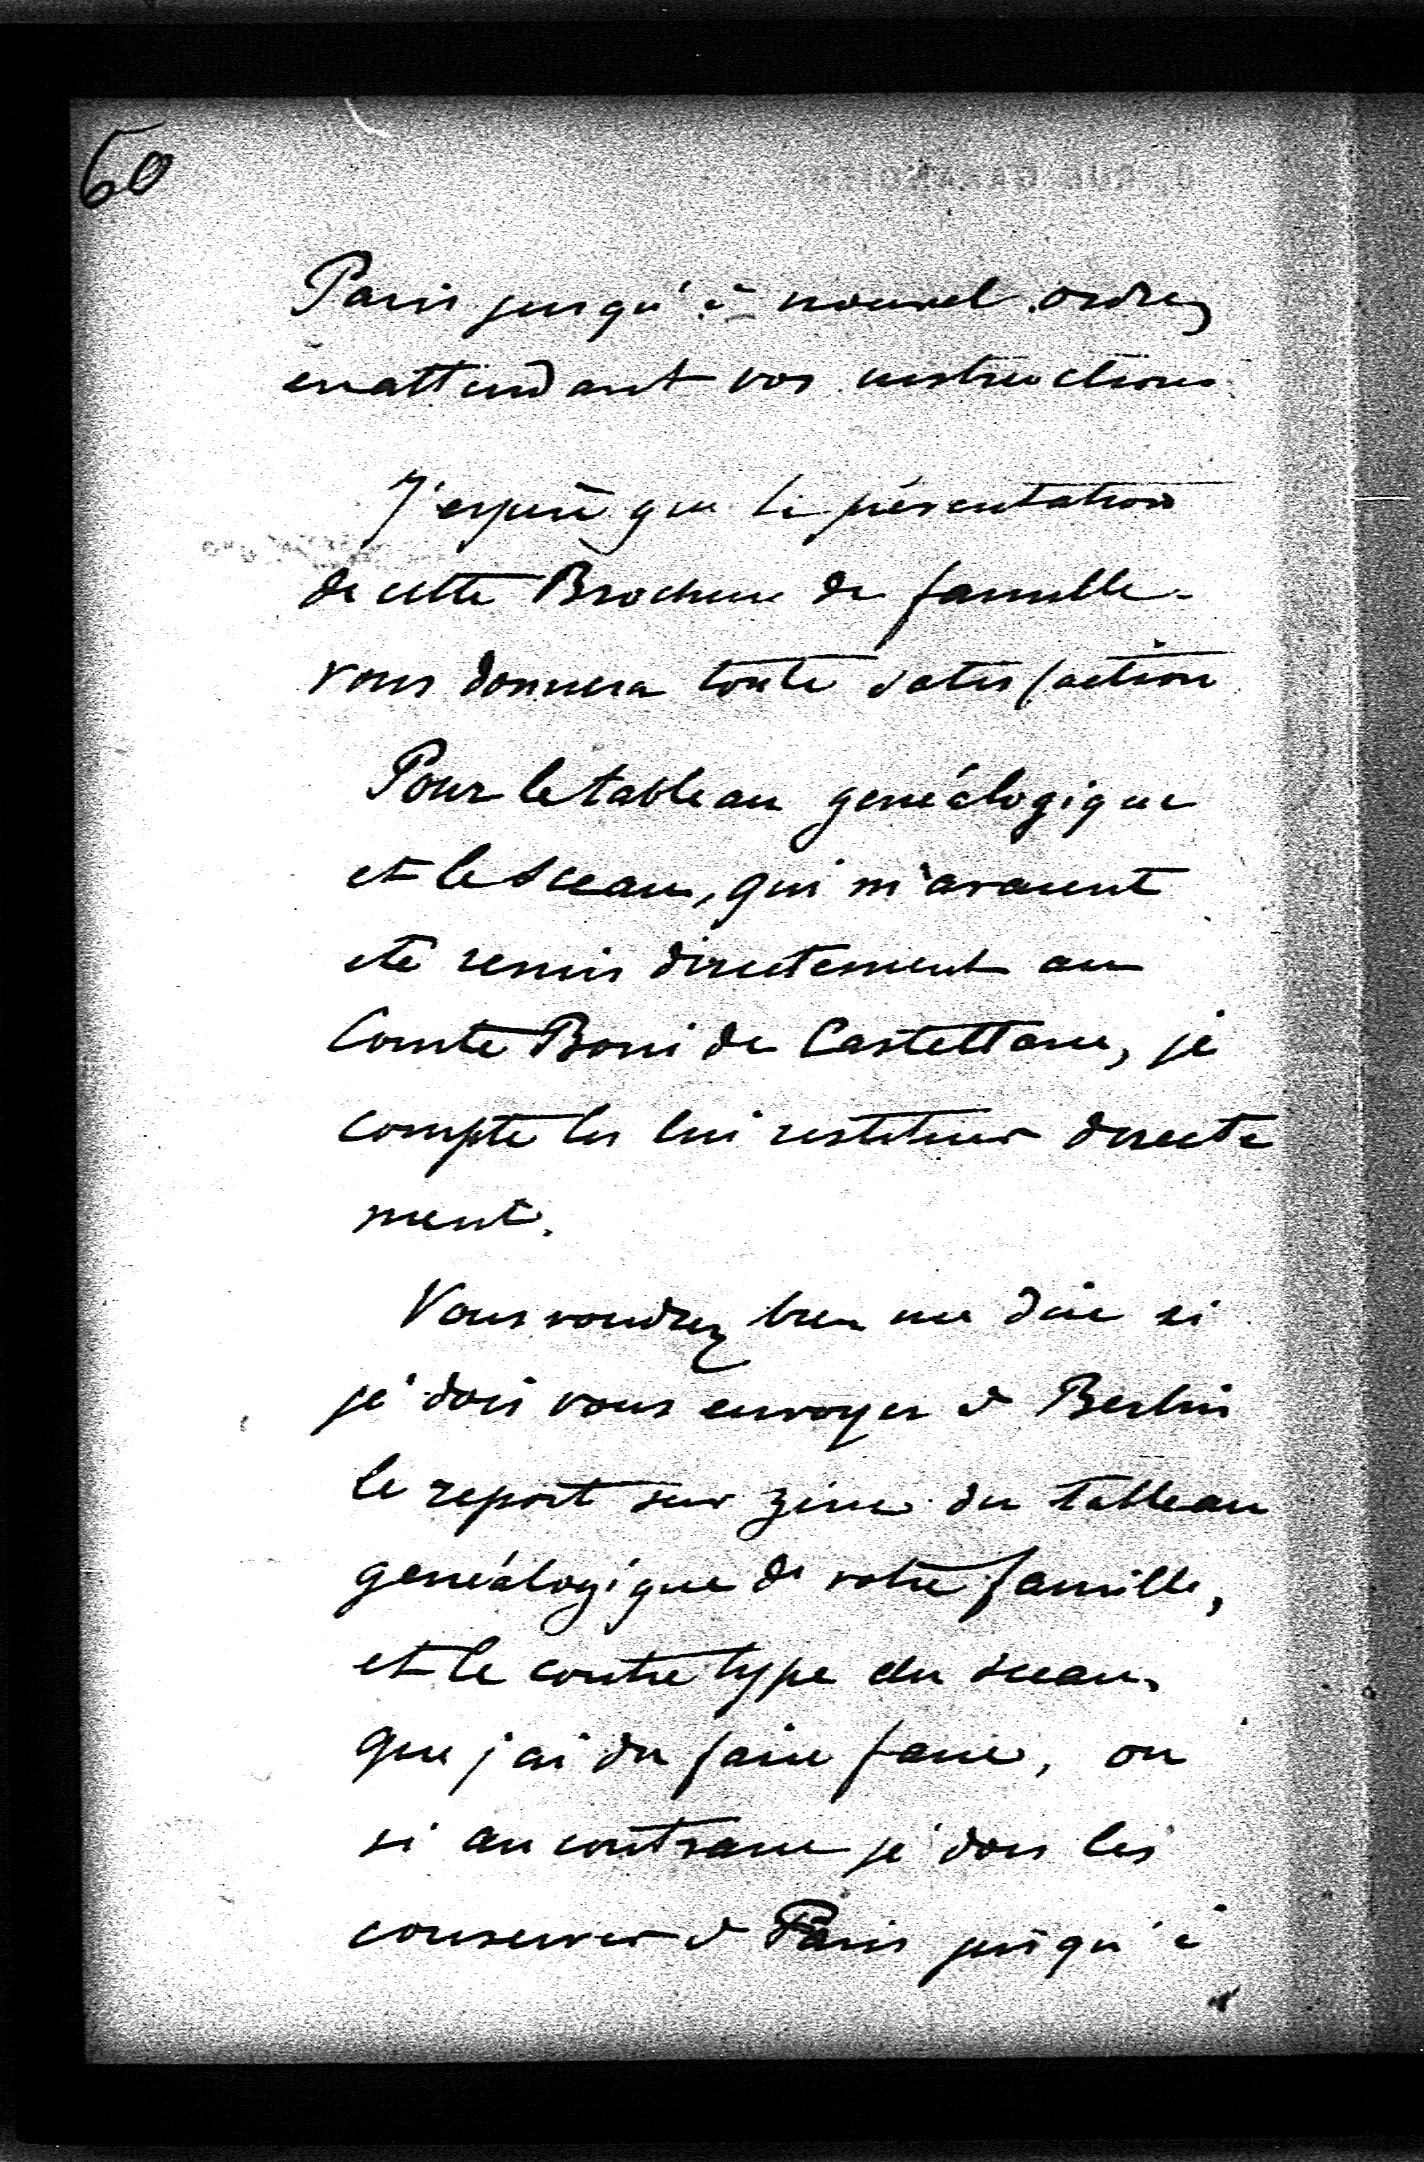 60
Paris jusqu'à nouvel ordre,
en attendant vos instructions.
J'espère que la présentation
de cette Brochure de famille
vous donnera toute satisfaction
Pour le tableau genéalogique
et le sceau, qui m'avaient
eté remis directement au
Comte Boni de Castellane, je
compte les lui restituer directe
ment.
Vous voudrez bien me dire si
je dois vous envoyer à Berlin
le report sur zinc du tableau
genéalogique de votre famille,
et le contretype du sceau,
que j'ai du faire faire, ou
si au contraire je dois les
conserver à Paris jusqu'à